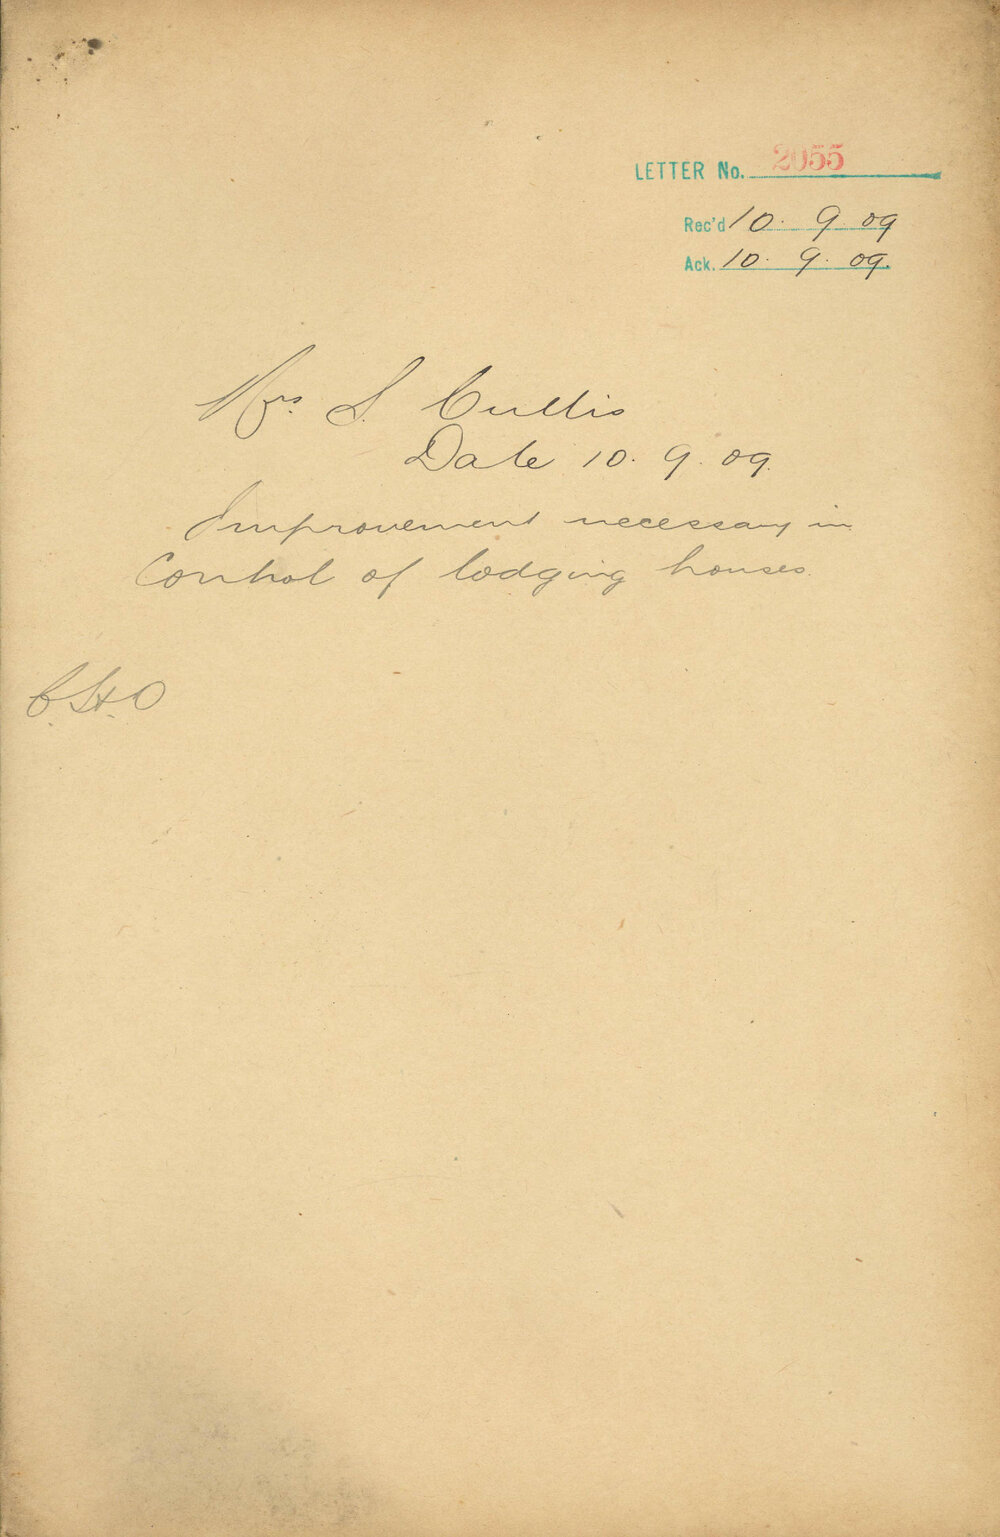 LETTER No. 2055
Rec'd 10. 9. 09
Ack. 10. 9. 09.
Mrs. S. Cullis
Date 10. 9. 09.
Improvement necessary in
Control of lodging houses.
C.H.O